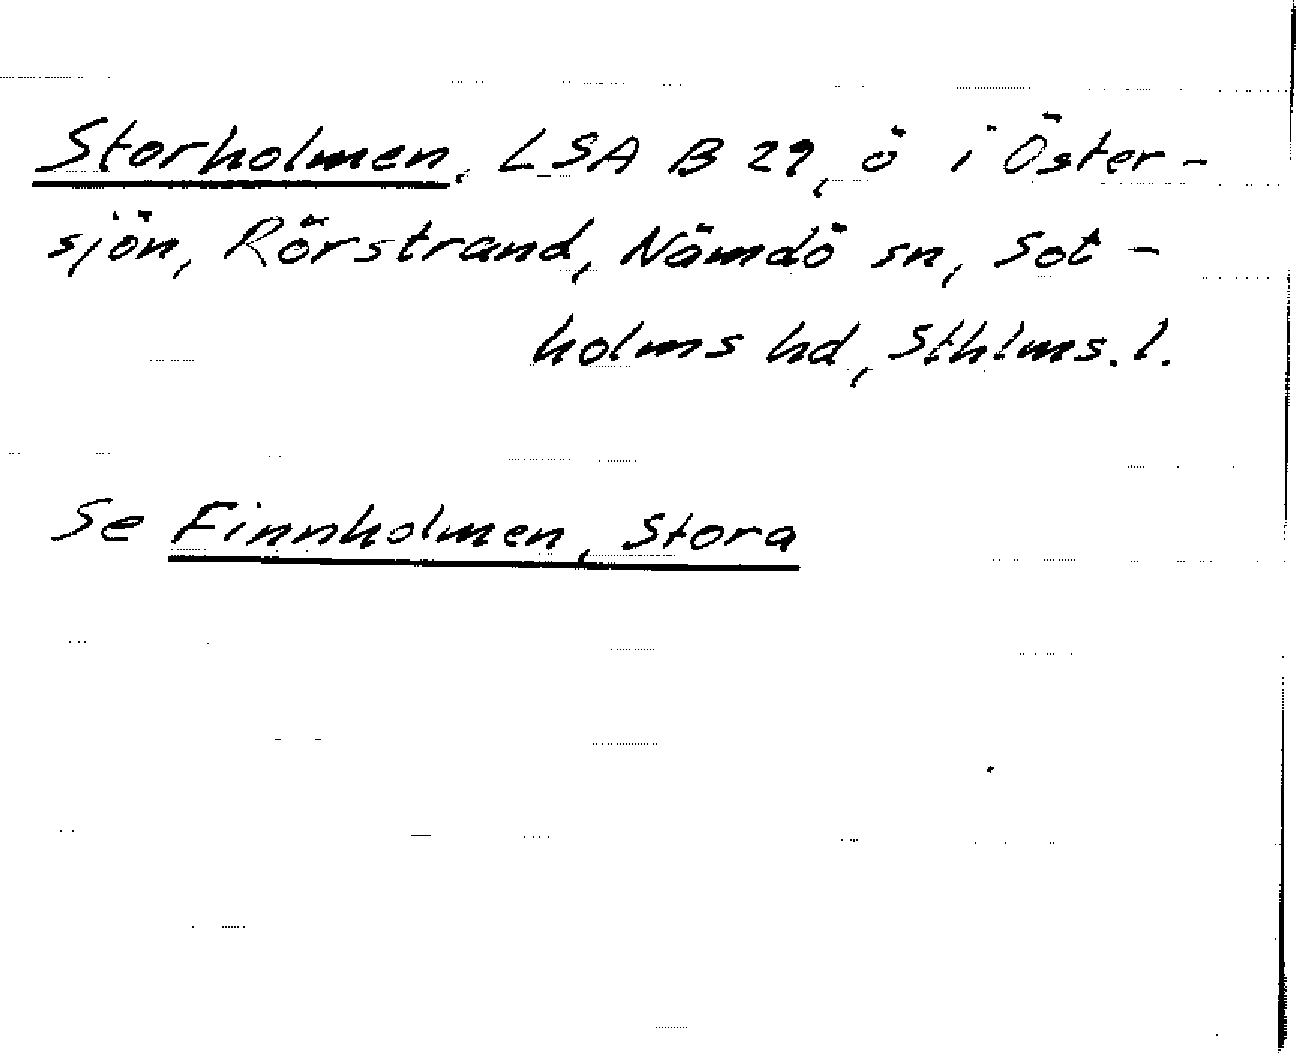 Storholmen, LSA B 29, ö i Öster-
sjön, Rörstrand, Nämdö sn, Sot-
holms hd, Sthlms. l.
Se Finnholmen, Stora